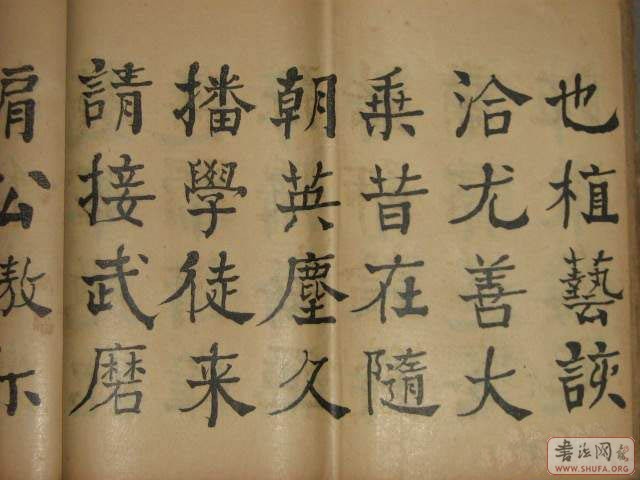 也植藝詼
洽尤善大
乗昔在隨
朝英塵久
播學徒来
請接武磨
肩公敖
書法网
WWW.SHUFA.ORG